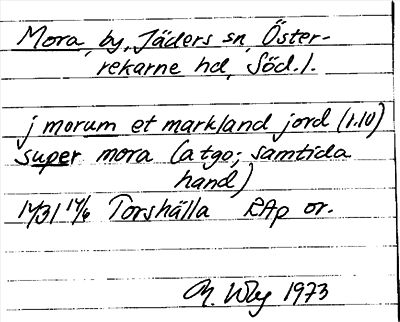 Mora, by, Jäders sn, Öster-
rekarne hd, Söd. l.
j morum et markland jord (r.10)
super mora (atgo; samtida
hand)
1431 14/6 Torshälla RAp or.
M. Wbg 1973